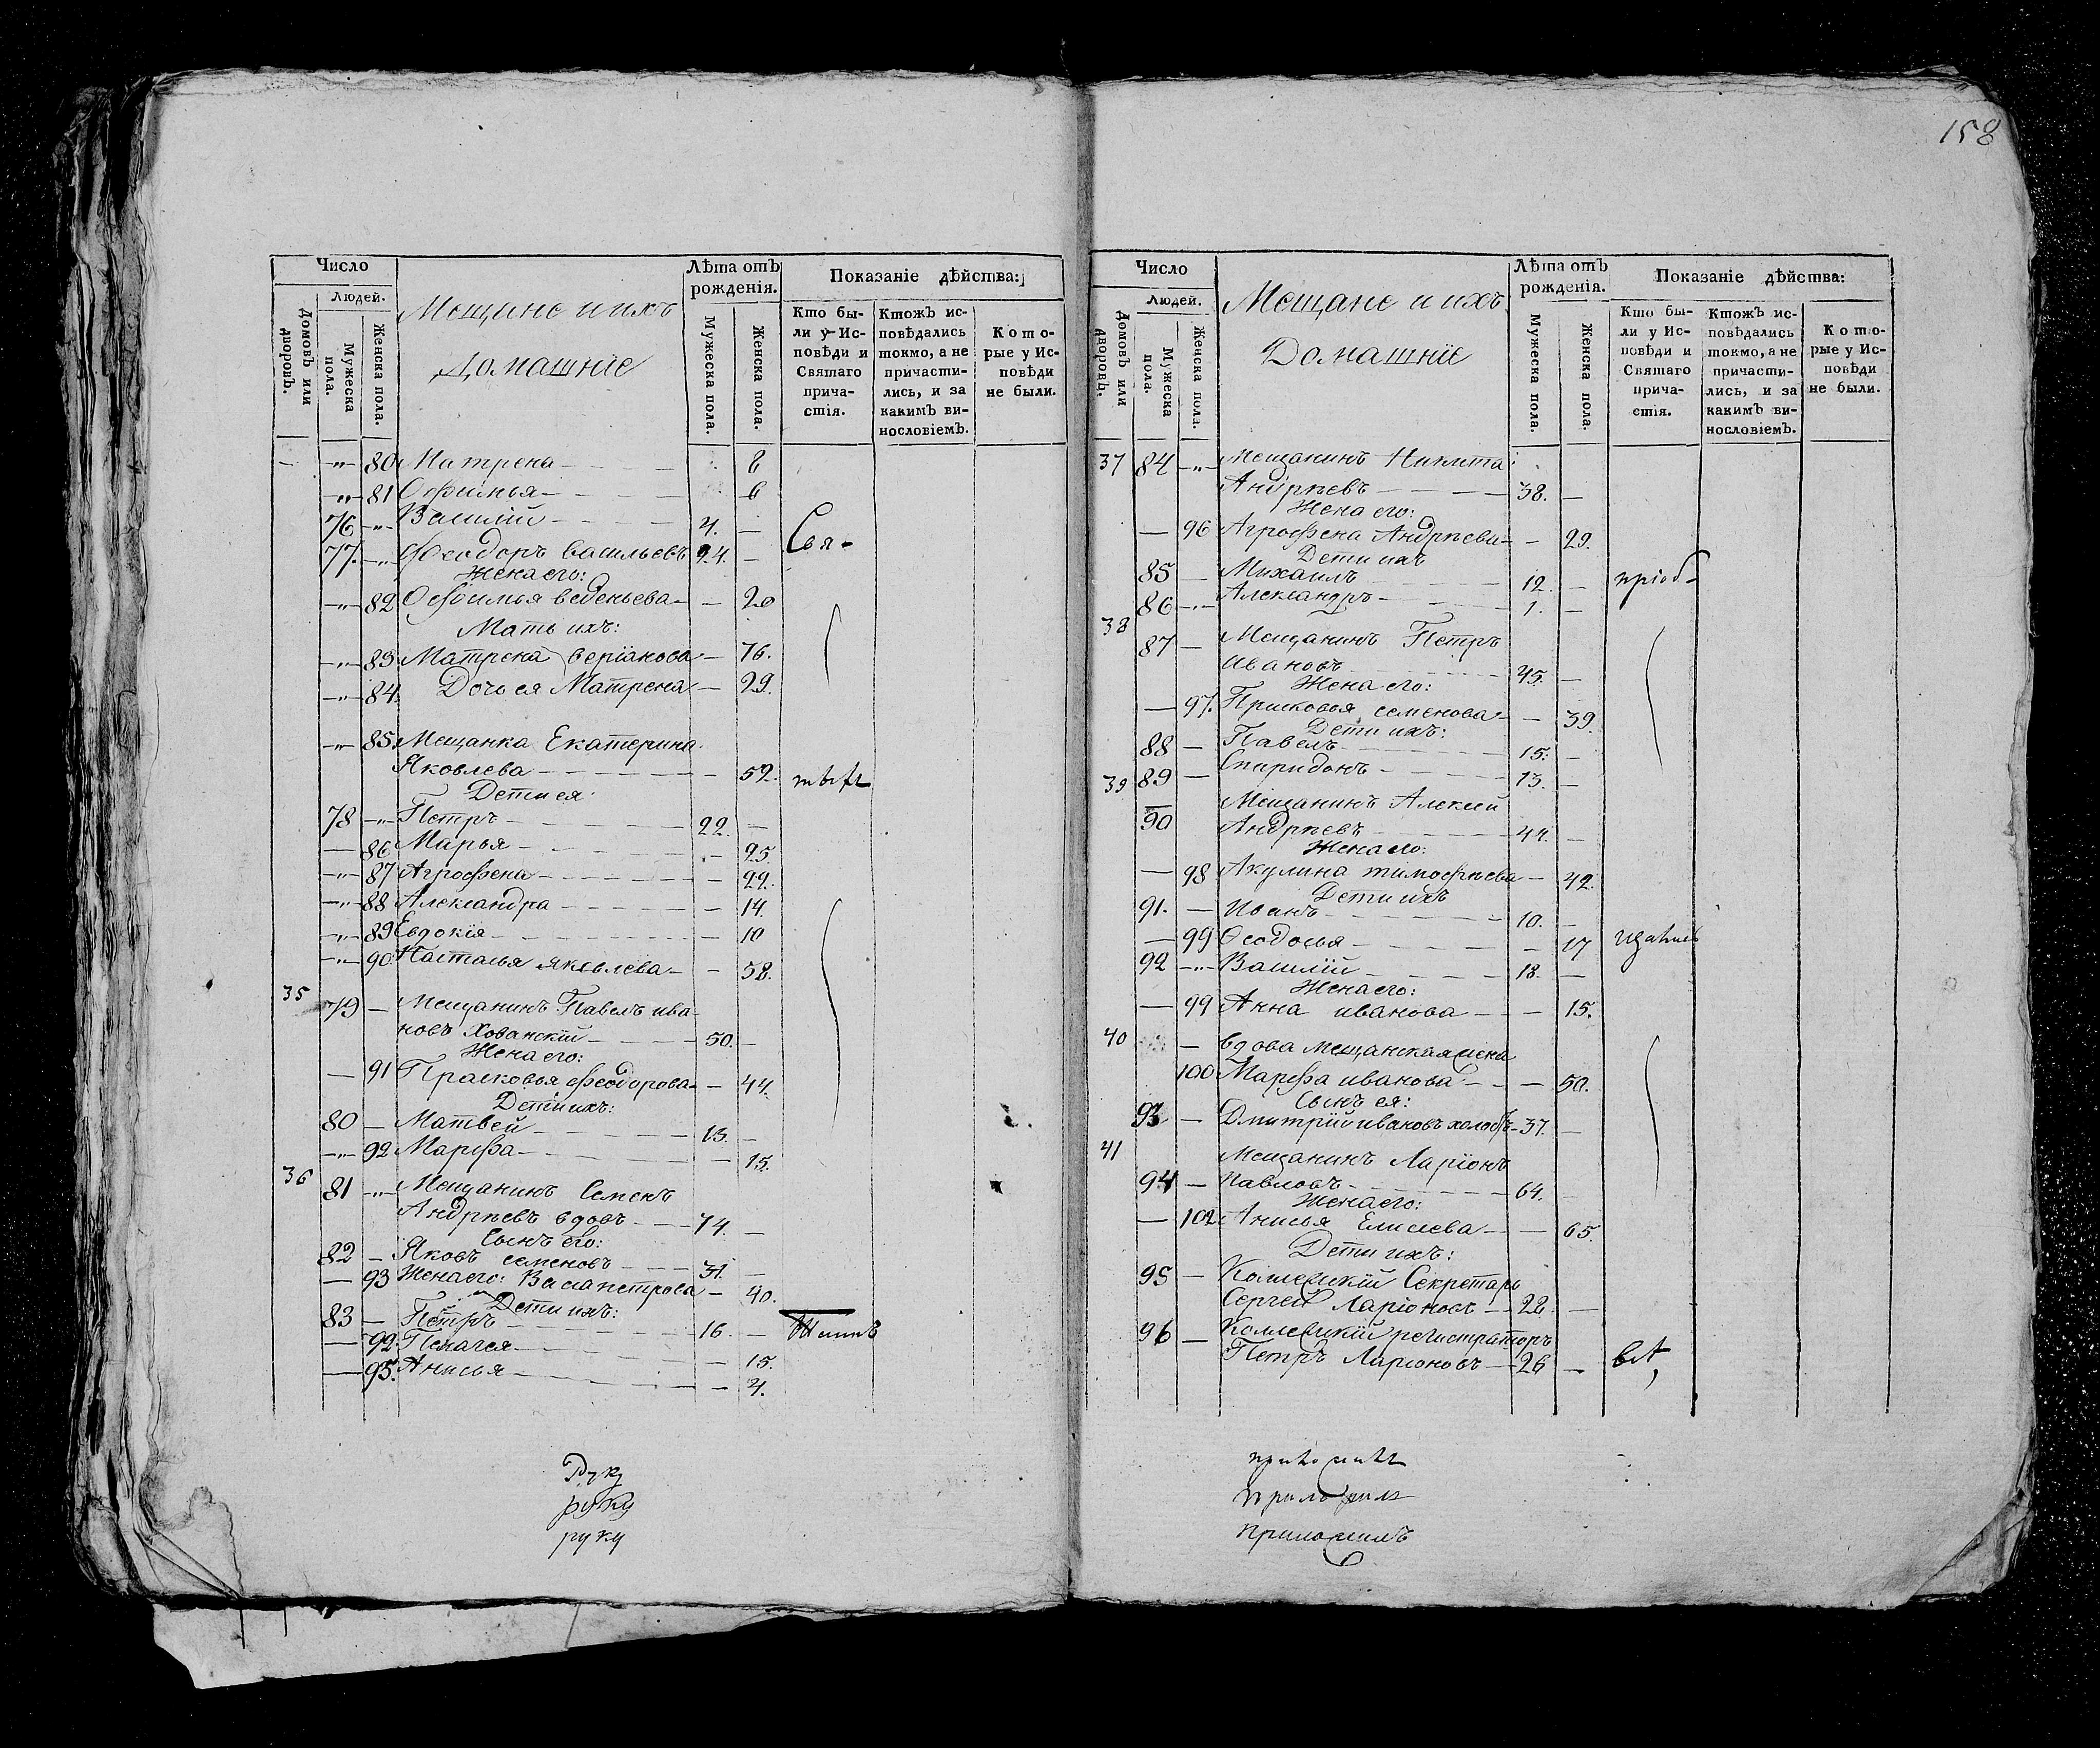 158
Число
Лѣта отъ рожденія.
Показаніе дѣйства:
Людей.
Домовъ или дворовъ.
Мужеска пола.
Женска пола.
Мещане и ихъ
Домашніе
Мужеска пола.
Женска пола.
Кто были у Исповѣди и Святаго причастія.
Ктожъ исповѣдались токмо, а не причастились, и за какимъ винословіемъ.
Которые у Исповѣди не были.
— „ 80 Матрена — 8
„ 81 Офимья — 6
76 „ Василій — 4. —
77. „ Феодоръ Васильевъ 24. — Свя-
Жена его:
„ 82 Офимья веденьева — 20
Мать ихъ:
„ 83 Матрена — 76.
„ 84. Дочь ея Матрена — 29.
„ 85 Мещанка Екатерина
Яковлева — 52.
Дети ея
78 „ Петръ — 22. —
— 86 Марья — 25.
„ 87 Аграфена — 22.
„ 88 Александра — 14.
„ 89 Евдокія — 10
„ 90 Настасья Яковлева — 58.
35 79 — Мещанинъ Павелъ ива-
новъ Хованскій — 50. —
Жена его:
— 91 Прасковья Феодорова — 44.
Дети ихъ:
80 — Матвей — 13. —
„ 92 Марфа — 15.
36 81 „ Мещанинъ Семенъ
Андрѣевъ вдовъ — 74. —
Сынъ его:
82 — Яковъ семеновъ — 31. —
— 93 Жена его: Васа петрова — 40.
Дети ихъ:
83 — Петръ — 16. —
— 92 Пелагея — 15.
— 95. Анисья — 4.
Руку
руку
руку
Число
Лѣта отъ рожденія.
Показаніе дѣйства:
Людей.
Домовъ или дворовъ.
Мужеска пола.
Женска пола.
Мещане и ихъ
Домашніе
Мужеска пола.
Женска пола.
Кто были у Исповѣди и Святаго причастія.
Ктожъ исповѣдались токмо, а не причастились, и за какимъ винословіемъ.
Которые у Исповѣди не были.
37 84 „ Мещанинъ Никита
Андрѣевъ — 38. —
Жена его:
— 96 Аграфена Андрѣева — 29.
Дети ихъ
85 — Михаилъ — 12. — пріоб-
86 „ Александръ — 1. —
38
87 — Мещанинъ Петръ
Ивановъ — 45. —
Жена его:
— 97. Прасковья семенова — 39.
Дети ихъ:
88 — Павелъ — 15. —
39 89 — Спиридонъ — 13. —
Мещанинъ Алексей
90 Андрѣевъ — 44. —
Жена его:
— 98 Акулина тимофѣева — 42.
Дети ихъ
91. — Иванъ — 10. —
— 99 Феодосья — 17
92 „ Василій — 18. —
Жена его:
— 99 Анна иванова — 15.
40 — вдова мещанская жена
100 Марфа иванова — 50.
Сынъ ея:
93 — Дмитрій ивановъ — 37. —
41 Мещанинъ Ларіонъ
94 — Павловъ — 64. —
Жена его:
— 102 Анисья Елисеева — 65.
Дети ихъ:
95 — Коллежскій Секретарь
Сергей Ларіоновъ — 28. —
96 — Коллежскій регистраторъ
Петръ Ларіоновъ — 26 —
приложилъ
приложилъ
приложилъ